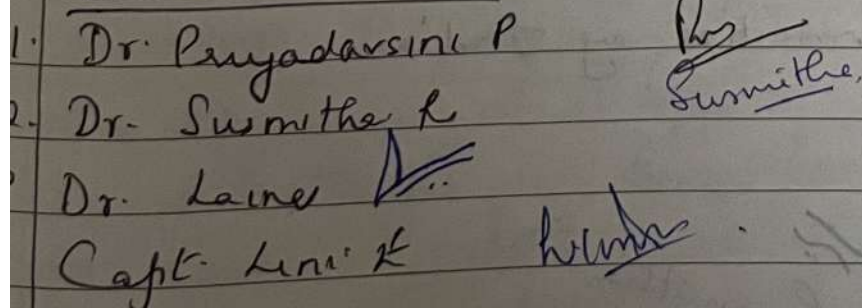 1. Dr. Priyadarsini P
2. Dr. Susmitha R Susmitha.
Dr.
Capt. Leni K